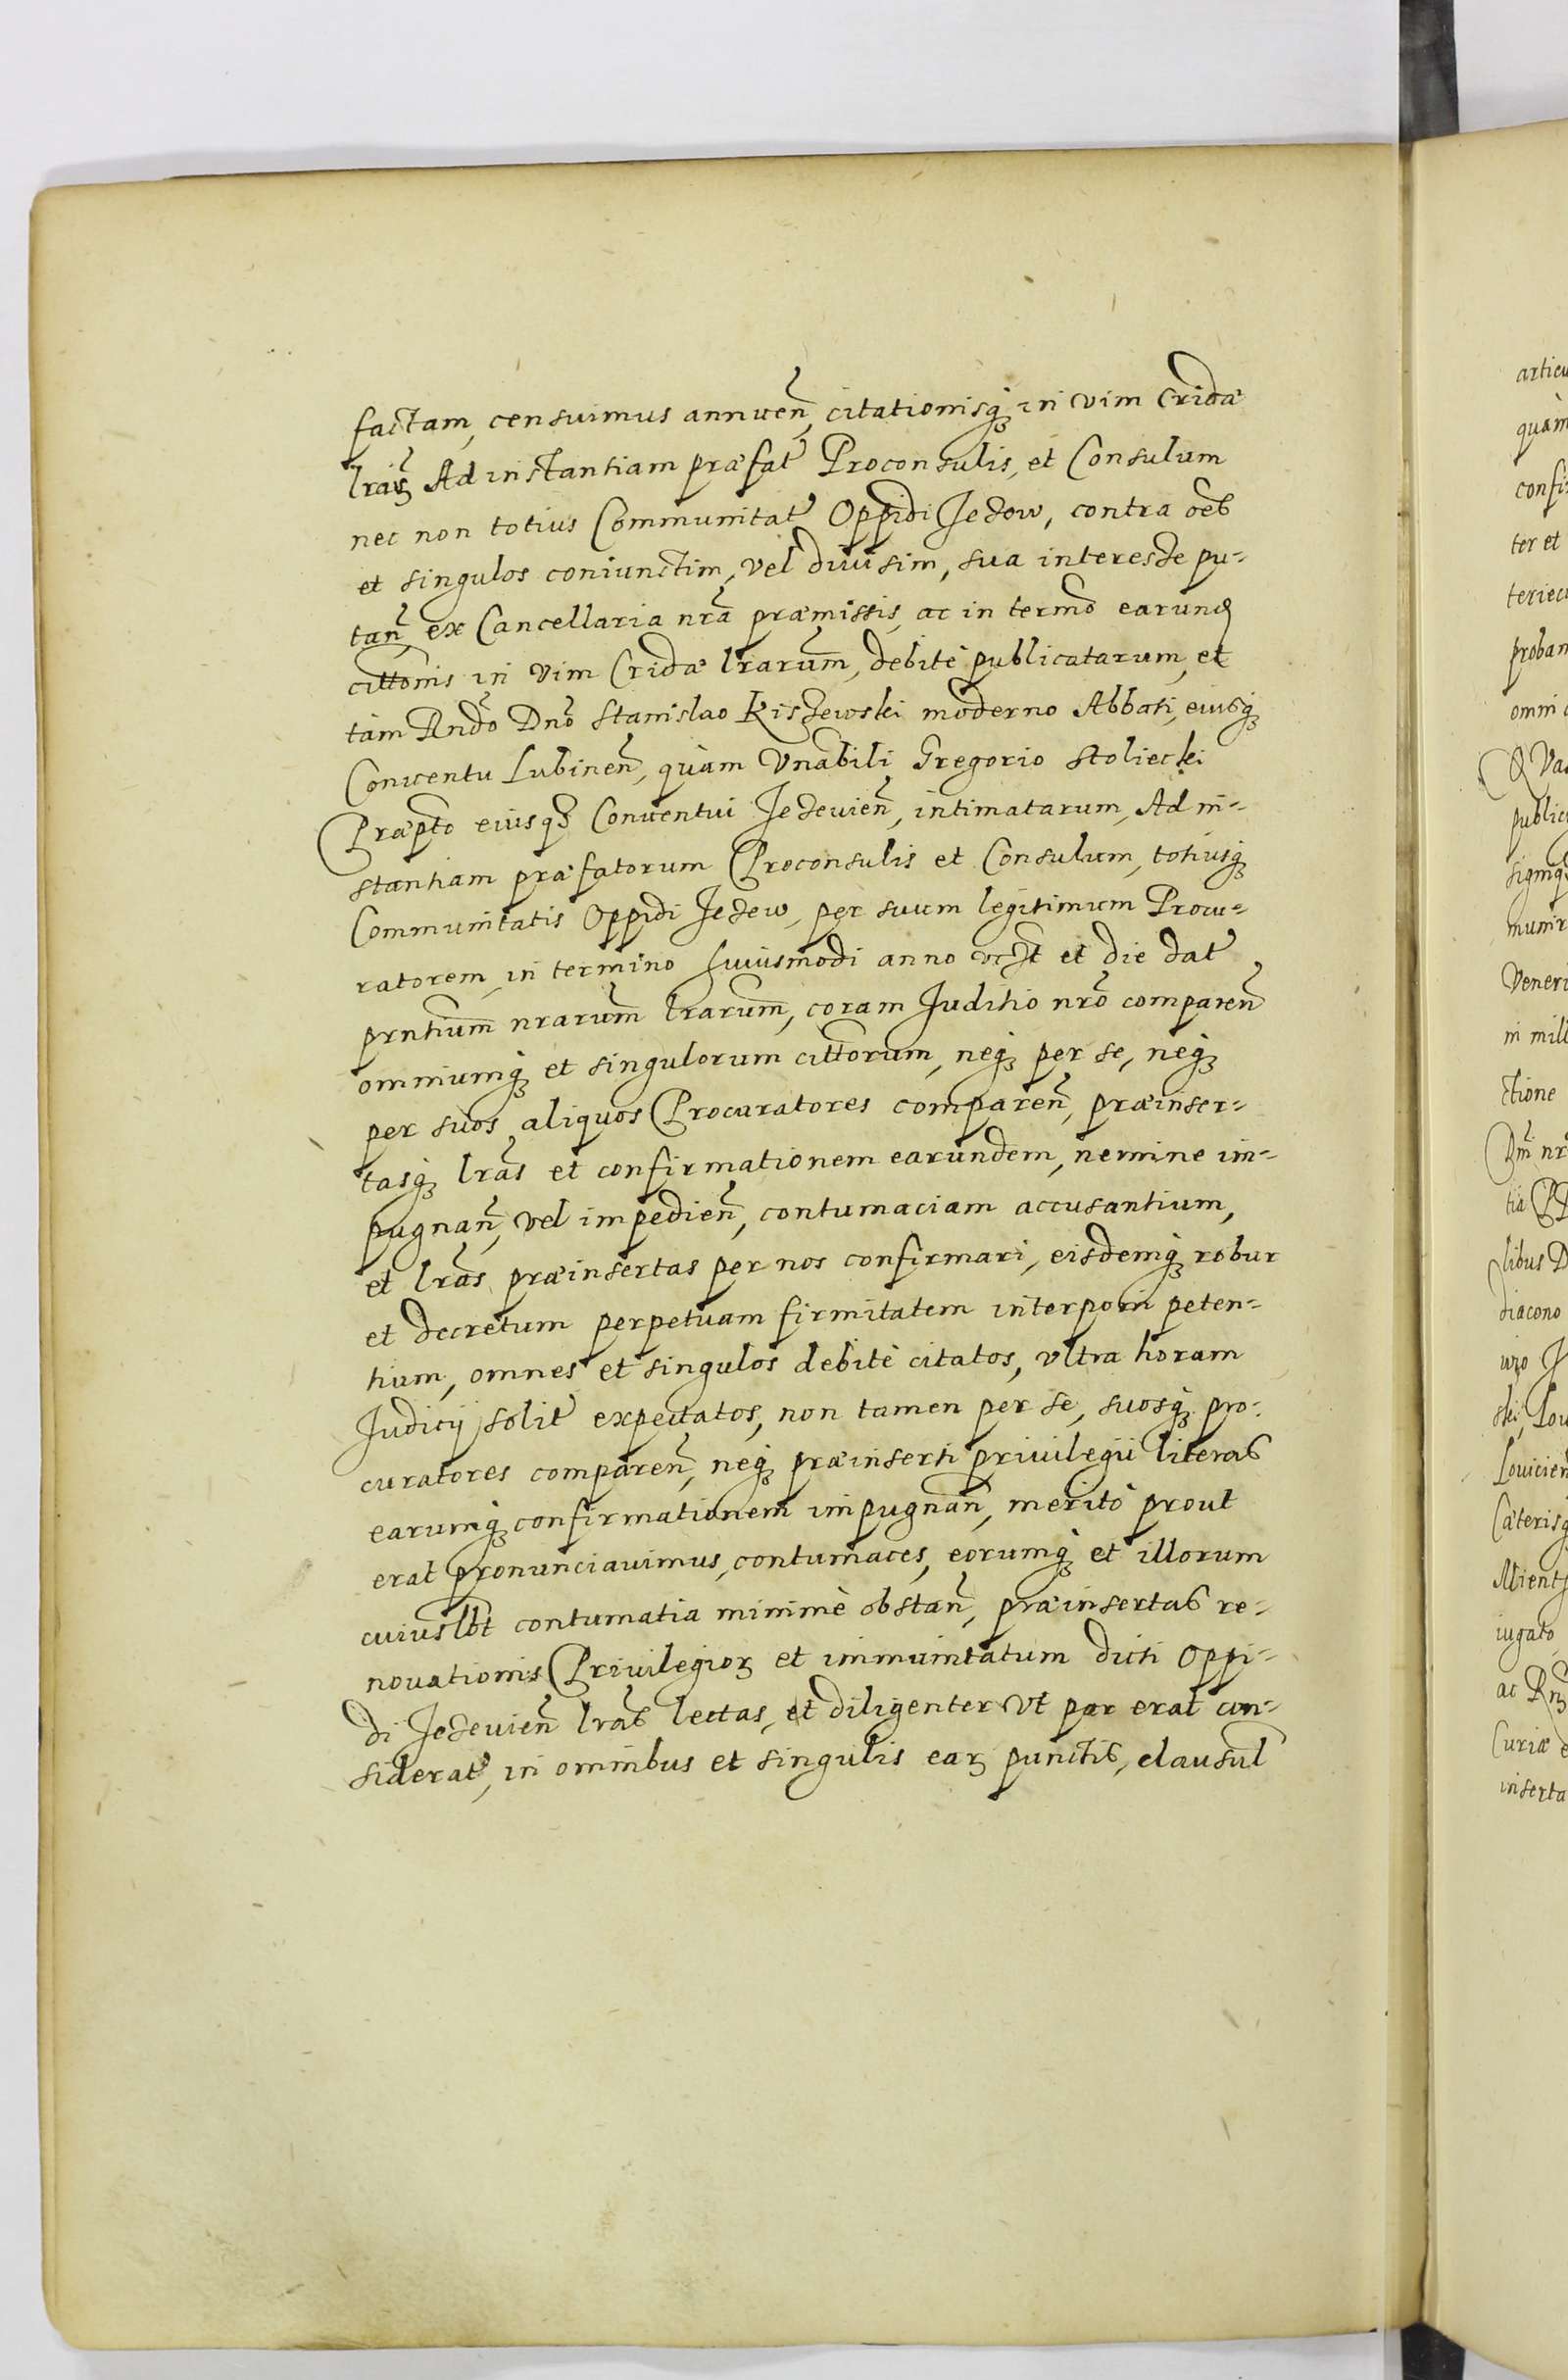 factam, censuimus annuen̄, citationisq̧ in vim Cridæ
lr̄aꝝ Ad instantiam præfat̄ Proconsulis, et Consulum
nec non totius Communitat̄ Oppidi Jeżow, contra oēs
et singulos coniunctim, vel diuisim, sua interesse pu-
tan̄ ex Cancellaria nr̄a præmissis, ac in termō earund
citt̄onis in vim Cridæ lr̄arum̄, debitè publicatarum, et
tàm Rn̄do Dn̄o Stanislao Kiszewski moderno Abbati, eiusq̧
Conuentu Lubinen̄, quàm Vn̄abili Gregorio Stoliecki
Præpt̄o eiusq̧ Conuentui Jeżeuien̄, intimatarum, Ad in-
stantiam præfatorum Proconsulis et Consulum, totiusq̧
Communitatis Oppidi Jeżew, per suum legitimum Procu-
ratorem, in termino huiusmodi anno et die dat̄
prn̄tium̄ nr̄arum̄ lr̄arum̄, coram Juditio nr̄o comparen̄
omniumq̧ et singulorum citt̄orum, neq̧ per se, neq̧
per suos aliquos Procuratores comparen̄, præinser-
tasq̧ lr̄as et confirmationem earundem, nemine im-
pugnan̄, vel impedien̄, contumaciam accusantium,
et lr̄as præinsertas per nos confirmari, eisdemq̧ robur
et decretum perpetuam firmitatem interponi peten-
tium, omnes et singulos debitè citatos, vltra horam
Judicij solit̄ expectatos, non tamen per se, suosq̧ pro-
curatores comparen̄, neq̧ præinserti priuilegii literas
earumq̧ confirmationem impugnan̄, meritò prout
erat pronunciauimus, contumaces, eorumq̧ et illorum
cuiuslb̄t contumatia minimè obstan̄, præinsertas re-
nouationis Priuilegioꝝ et immunitatum dicti Oppi-
di Jeżeuien̄ lr̄as lectas, et diligenter vt par erat con-
siderat̄, in omnibus et singulis eaꝝ punctis, clausul̄